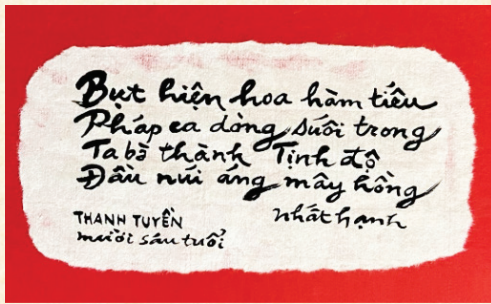 Bụt hiện hoa hàm tiếu
Pháp ca dòng suối trong
Ta bà thành Tịnh độ
Đầu núi áng mây hồng
THANH TUYỀN
nhất hạnh
mười sáu tuổi